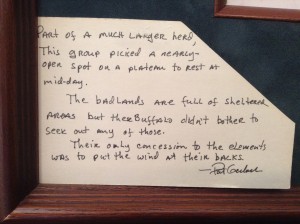 Part of a much larger herd,
This group picked a nearly-
open spot on a plateau to rest at
mid-day.
The badlands are full of sheltered
areas but these Buffalo didn't bother to
seek out any of those.
Their only concession to the elements
was to put the wind at their backs.